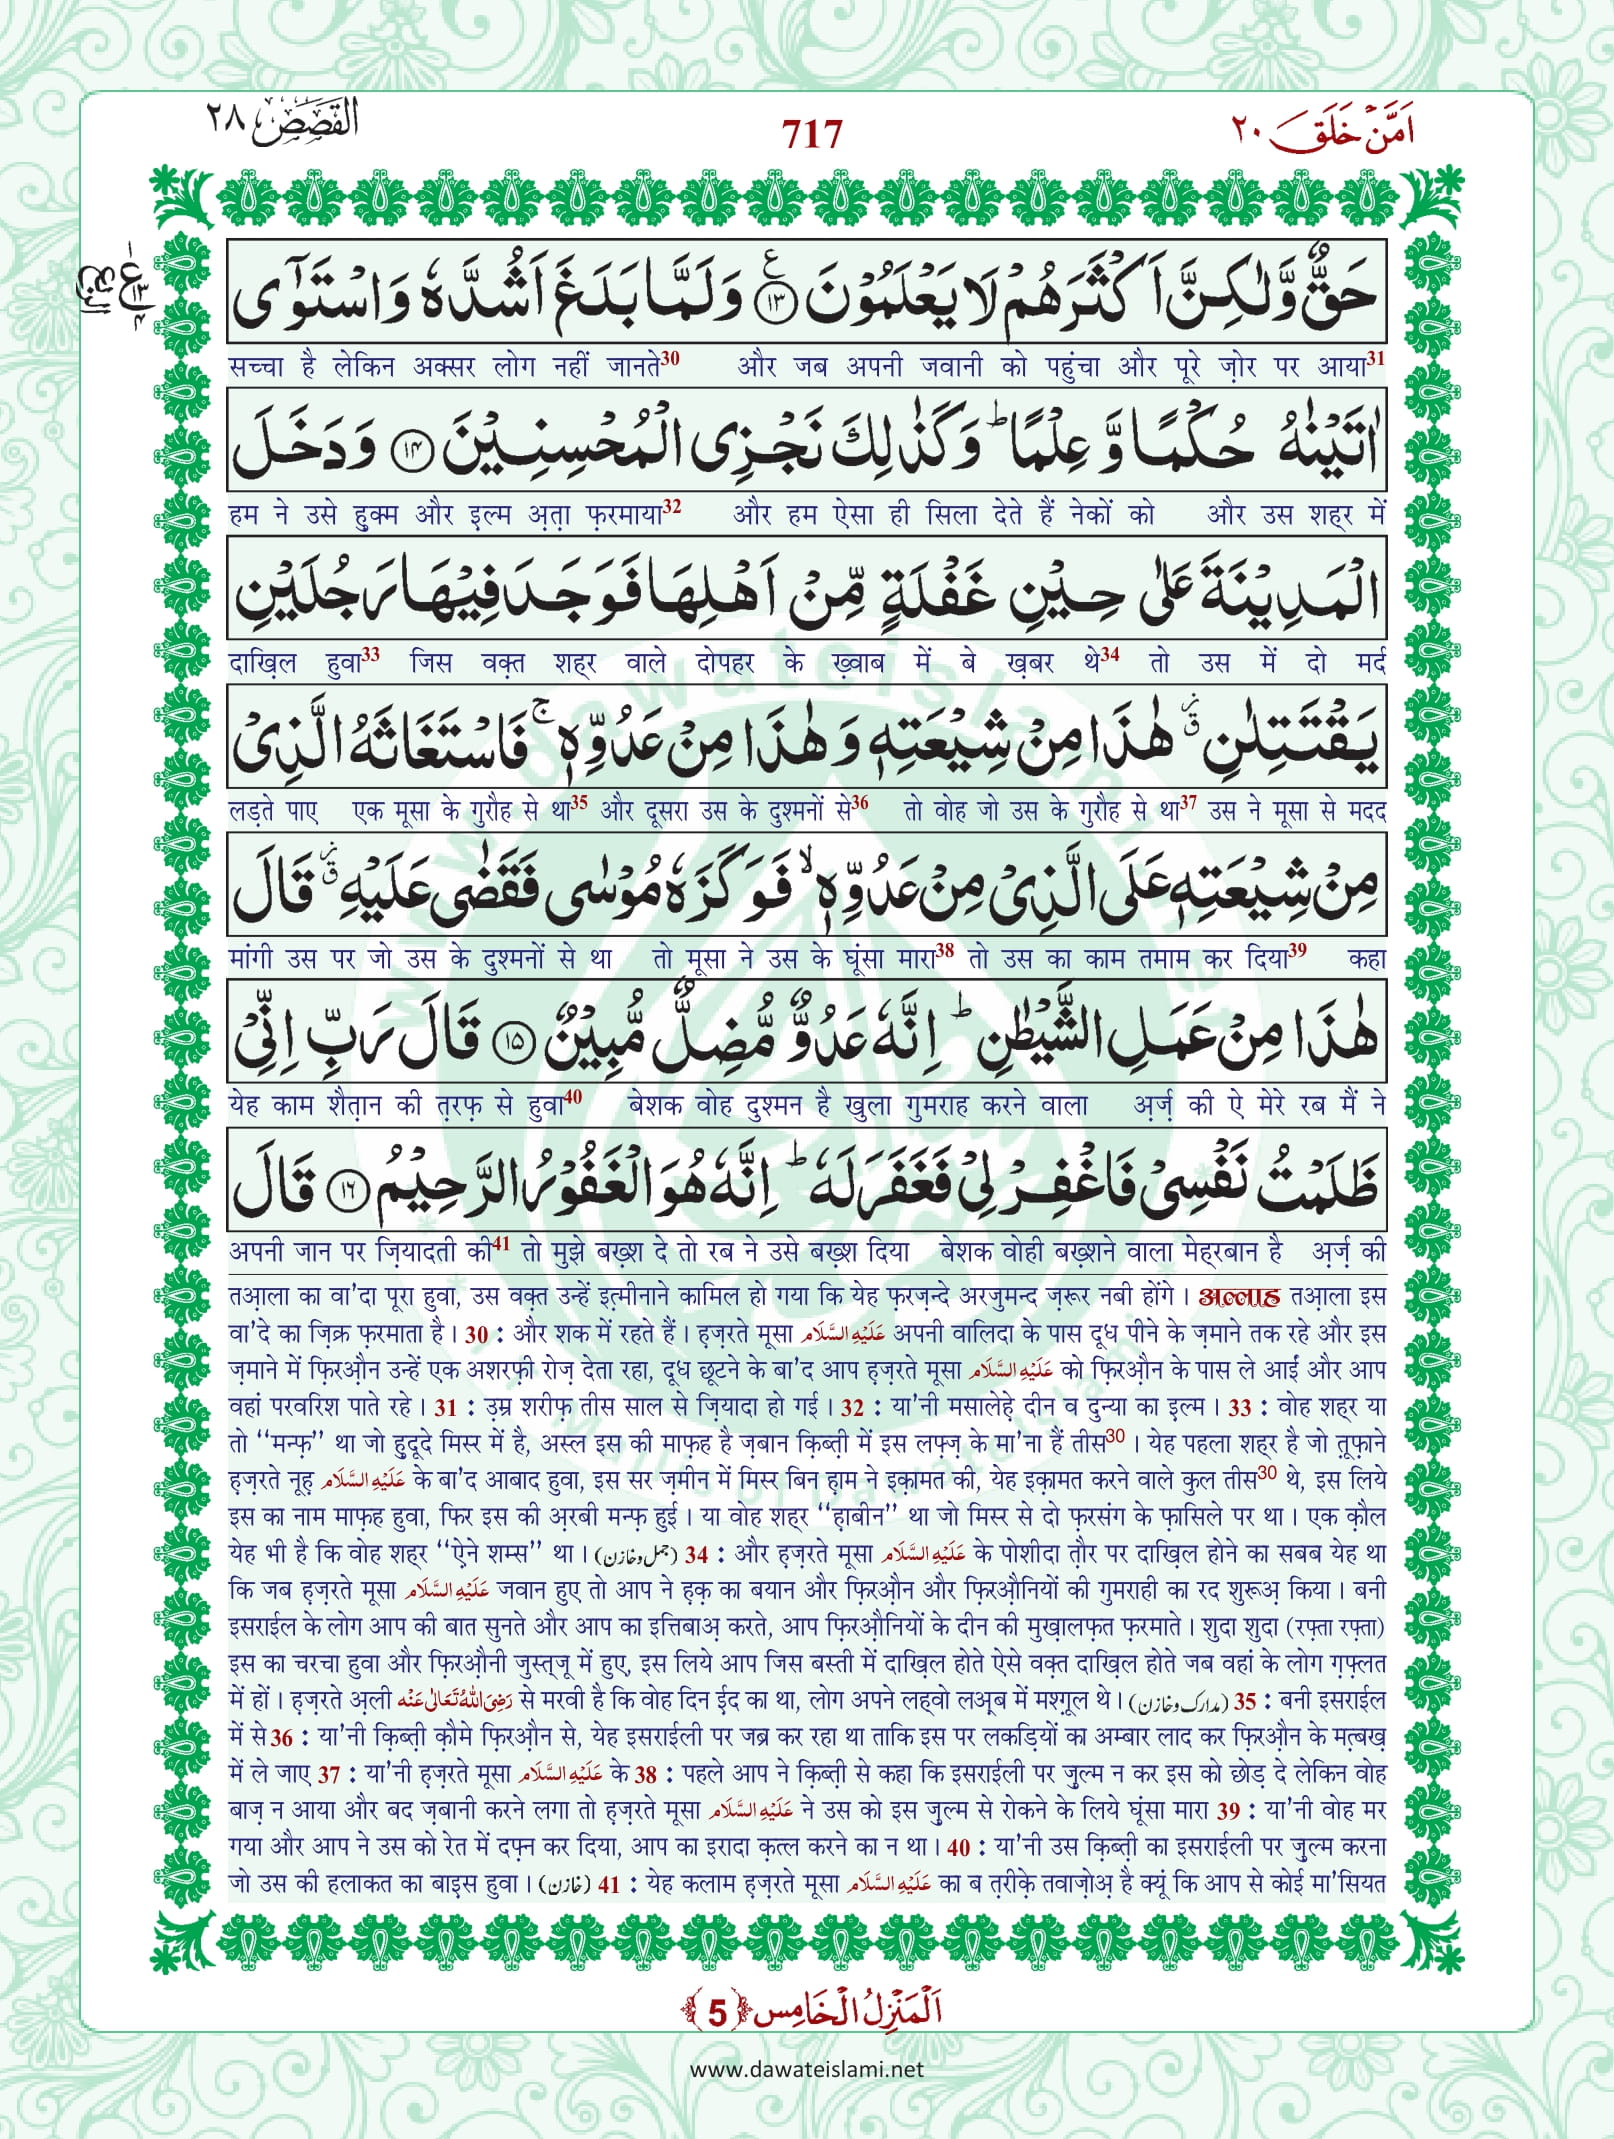 القصص ٢٨
717
اَمَّنْ خَلَقَ ٢٠
حَقٌّ وَّلٰكِنَّ اَكْثَرَهُمْ لَا یَعْلَمُوْنَ ﴿۱۳﴾ ع وَلَمَّا بَلَغَ اَشُدَّهٗ وَاسْتَوٰۤی
सच्चा है लेकिन अक्सर लोग नहीं जानते30 और जब अपनी जवानी को पहुंचा और पूरे ज़ोर पर आया31
اٰتَیْنٰهُ حُكْمًا وَّ عِلْمًا ؕ وَكَذٰلِكَ نَجْزِی الْمُحْسِنِیْنَ ﴿۱۴﴾ وَ دَخَلَ
हम ने उसे हुक्म और इल्म अ़त़ा फ़रमाया32 और हम ऐसा ही सिला देते हैं नेकों को और उस शहर में
الْمَدِیْنَةَ عَلٰی حِیْنِ غَفْلَةٍ مِّنْ اَهْلِهَا فَوَجَدَ فِیْهَا رَجُلَیْنِ
दाख़िल हुवा33 जिस वक़्त शहर वाले दोपहर के ख़्वाब में बे ख़बर थे34 तो उस में दो मर्द
یَقْتَتِلٰنِ ٘ۗ هٰذَا مِنْ شِیْعَتِهٖ وَ هٰذَا مِنْ عَدُوِّهٖ ۚ فَاسْتَغَاثَهُ الَّذِیْ
लड़ते पाए एक मूसा के गुरौह से था35 और दूसरा उस के दुश्मनों से36 तो वोह जो उस के गुरौह से था37 उस ने मूसा से मदद
مِنْ شِیْعَتِهٖ عَلَی الَّذِیْ مِنْ عَدُوِّهٖ ۙ فَوَكَزَهٗ مُوْسٰی فَقَضٰی عَلَیْهِ ٘ۗ قَالَ
मांगी उस पर जो उस के दुश्मनों से था तो मूसा ने उस के घूंसा मारा38 तो उस का काम तमाम कर दिया39 कहा
هٰذَا مِنْ عَمَلِ الشَّیْطٰنِ ؕ اِنَّهٗ عَدُوٌّ مُّضِلٌّ مُّبِیْنٌ ﴿۱۵﴾ قَالَ رَبِّ اِنِّیْ
येह काम शैत़ान की त़रफ़ से हुवा40 बेशक वोह दुश्मन है खुला गुमराह करने वाला अ़र्ज़ की ऐ मेरे रब मैं ने
ظَلَمْتُ نَفْسِیْ فَاغْفِرْ لِیْ فَغَفَرَ لَهٗ ؕ اِنَّهٗ هُوَ الْغَفُوْرُ الرَّحِیْمُ ﴿۱۶﴾ قَالَ
अपनी जान पर ज़ियादती की41 तो मुझे बख़्श दे तो रब ने उसे बख़्श दिया बेशक वोही बख़्शने वाला मेहरबान है अ़र्ज़ की
तआ़ला का वा'दा पूरा हुवा, उस वक़्त उन्हें इत़्मीनाने कामिल हो गया कि येह फ़रज़न्दे अरजुमन्द ज़रूर नबी होंगे । अल्लाह तआ़ला इस
वा'दे का ज़िक्र फ़रमाता है । 30 : और शक में रहते हैं । ह़ज़रते मूसा عَلَيْهِ السَّلَام अपनी वालिदा के पास दूध पीने के ज़माने तक रहे और इस
ज़माने में फ़िरऔ़न उन्हें एक अशरफ़ी रोज़ देता रहा, दूध छूटने के बा'द आप ह़ज़रते मूसा عَلَيْهِ السَّلَام को फ़िरऔ़न के पास ले आईं और आप
वहां परवरिश पाते रहे । 31 : उ़म्र शरीफ़ तीस साल से ज़ियादा हो गई । 32 : या'नी मसालेह़े दीन व दुन्या का इल्म । 33 : वोह शहर या
तो "मन्फ़" था जो हु़दूदे मिस्र में है, अस्ल इस की माफ़ह है ज़बान क़िब्त़ी में इस लफ़्ज़ के मा'ना हैं तीस30 । येह पहला शहर है जो त़ूफ़ाने
ह़ज़रते नूह़ عَلَيْهِ السَّلَام के बा'द आबाद हुवा, इस सर ज़मीन में मिस्र बिन ह़ाम ने इक़ामत की, येह इक़ामत करने वाले कुल तीस30 थे, इस लिये
इस का नाम माफ़ह हुवा, फिर इस की अ़रबी मन्फ़ हुई । या वोह शहर "ह़ाबीन" था जो मिस्र से दो फ़रसंग के फ़ासिले पर था । एक क़ौल
येह भी है कि वोह शहर "ऐ़ने शम्स" था । (جمل وخازن) 34 : और ह़ज़रते मूसा عَلَيْهِ السَّلَام के पोशीदा त़ौर पर दाख़िल होने का सबब येह था
कि जब ह़ज़रते मूसा عَلَيْهِ السَّلَام जवान हुए तो आप ने ह़क़ का बयान और फ़िरऔ़न और फ़िरऔ़नियों की गुमराही का रद शुरूअ़ किया । बनी
इसराईल के लोग आप की बात सुनते और आप का इत्तिबाअ़ करते, आप फ़िरऔ़नियों के दीन की मुख़ालफ़त फ़रमाते । शुदा शुदा (रफ़्ता रफ़्ता)
इस का चरचा हुवा और फ़िरऔ़नी जुस्त्जू में हुए, इस लिये आप जिस बस्ती में दाख़िल होते ऐसे वक़्त दाख़िल होते जब वहां के लोग ग़फ़्लत
में हों । ह़ज़रते अ़ली رَضِیَ اللهُ تَعَالٰی عَنْه से मरवी है कि वोह दिन ई़द का था, लोग अपने लह्वो लअ़्ब में मश्ग़ूल थे । (مدارک وخازن) 35 : बनी इसराईल
में से 36 : या'नी क़िब्त़ी क़ौमे फ़िरऔ़न से, येह इसराईली पर जब्र कर रहा था ताकि इस पर लकड़ियों का अम्बार लाद कर फ़िरऔ़न के मत़्बख़
में ले जाए 37 : या'नी ह़ज़रते मूसा عَلَيْهِ السَّلَام के 38 : पहले आप ने क़िब्त़ी से कहा कि इसराईली पर ज़ुल्म न कर इस को छोड़ दे लेकिन वोह
बाज़ न आया और बद ज़बानी करने लगा तो ह़ज़रते मूसा عَلَيْهِ السَّلَام ने उस को इस ज़ुल्म से रोकने के लिये घूंसा मारा 39 : या'नी वोह मर
गया और आप ने उस को रेत में दफ़्न कर दिया, आप का इरादा क़त्ल करने का न था । 40 : या'नी उस क़िब्त़ी का इसराईली पर ज़ुल्म करना
जो उस की हलाकत का बाइस हुवा । (خازن) 41 : येह कलाम ह़ज़रते मूसा عَلَيْهِ السَّلَام का ब त़रीक़े तवाज़ोअ़ है क्यूं कि आप से कोई मा'सियत
اَلْمَنْزِلُ الْخَامِس ﴿5﴾
www.dawateislami.net